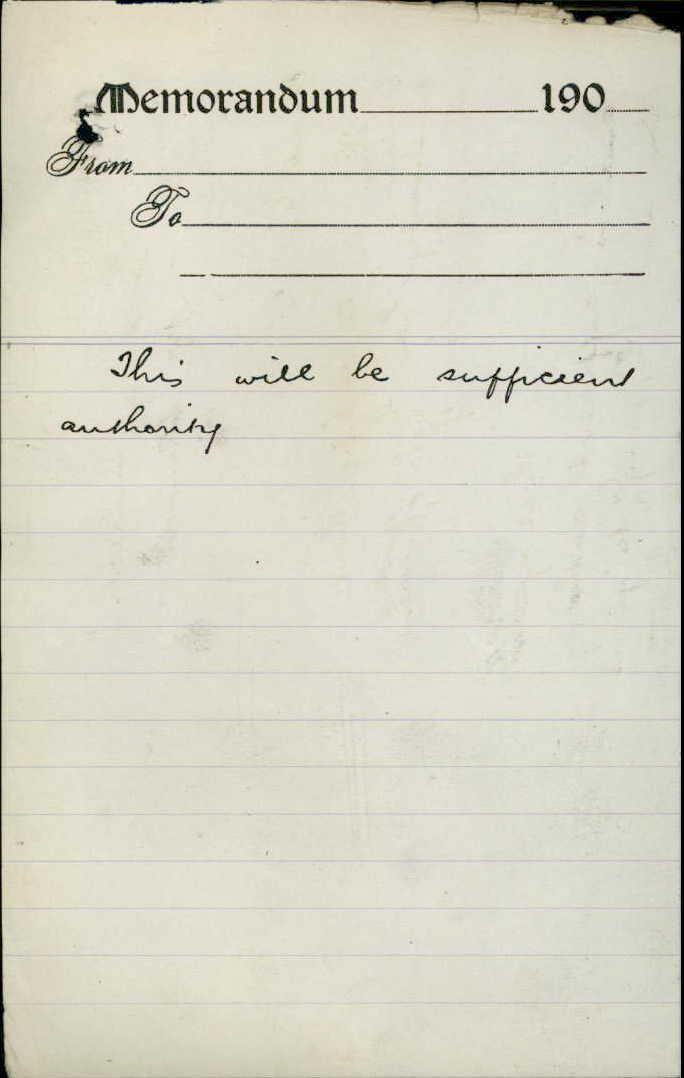 Memorandum 190
From
To
This will be sufficient
authority